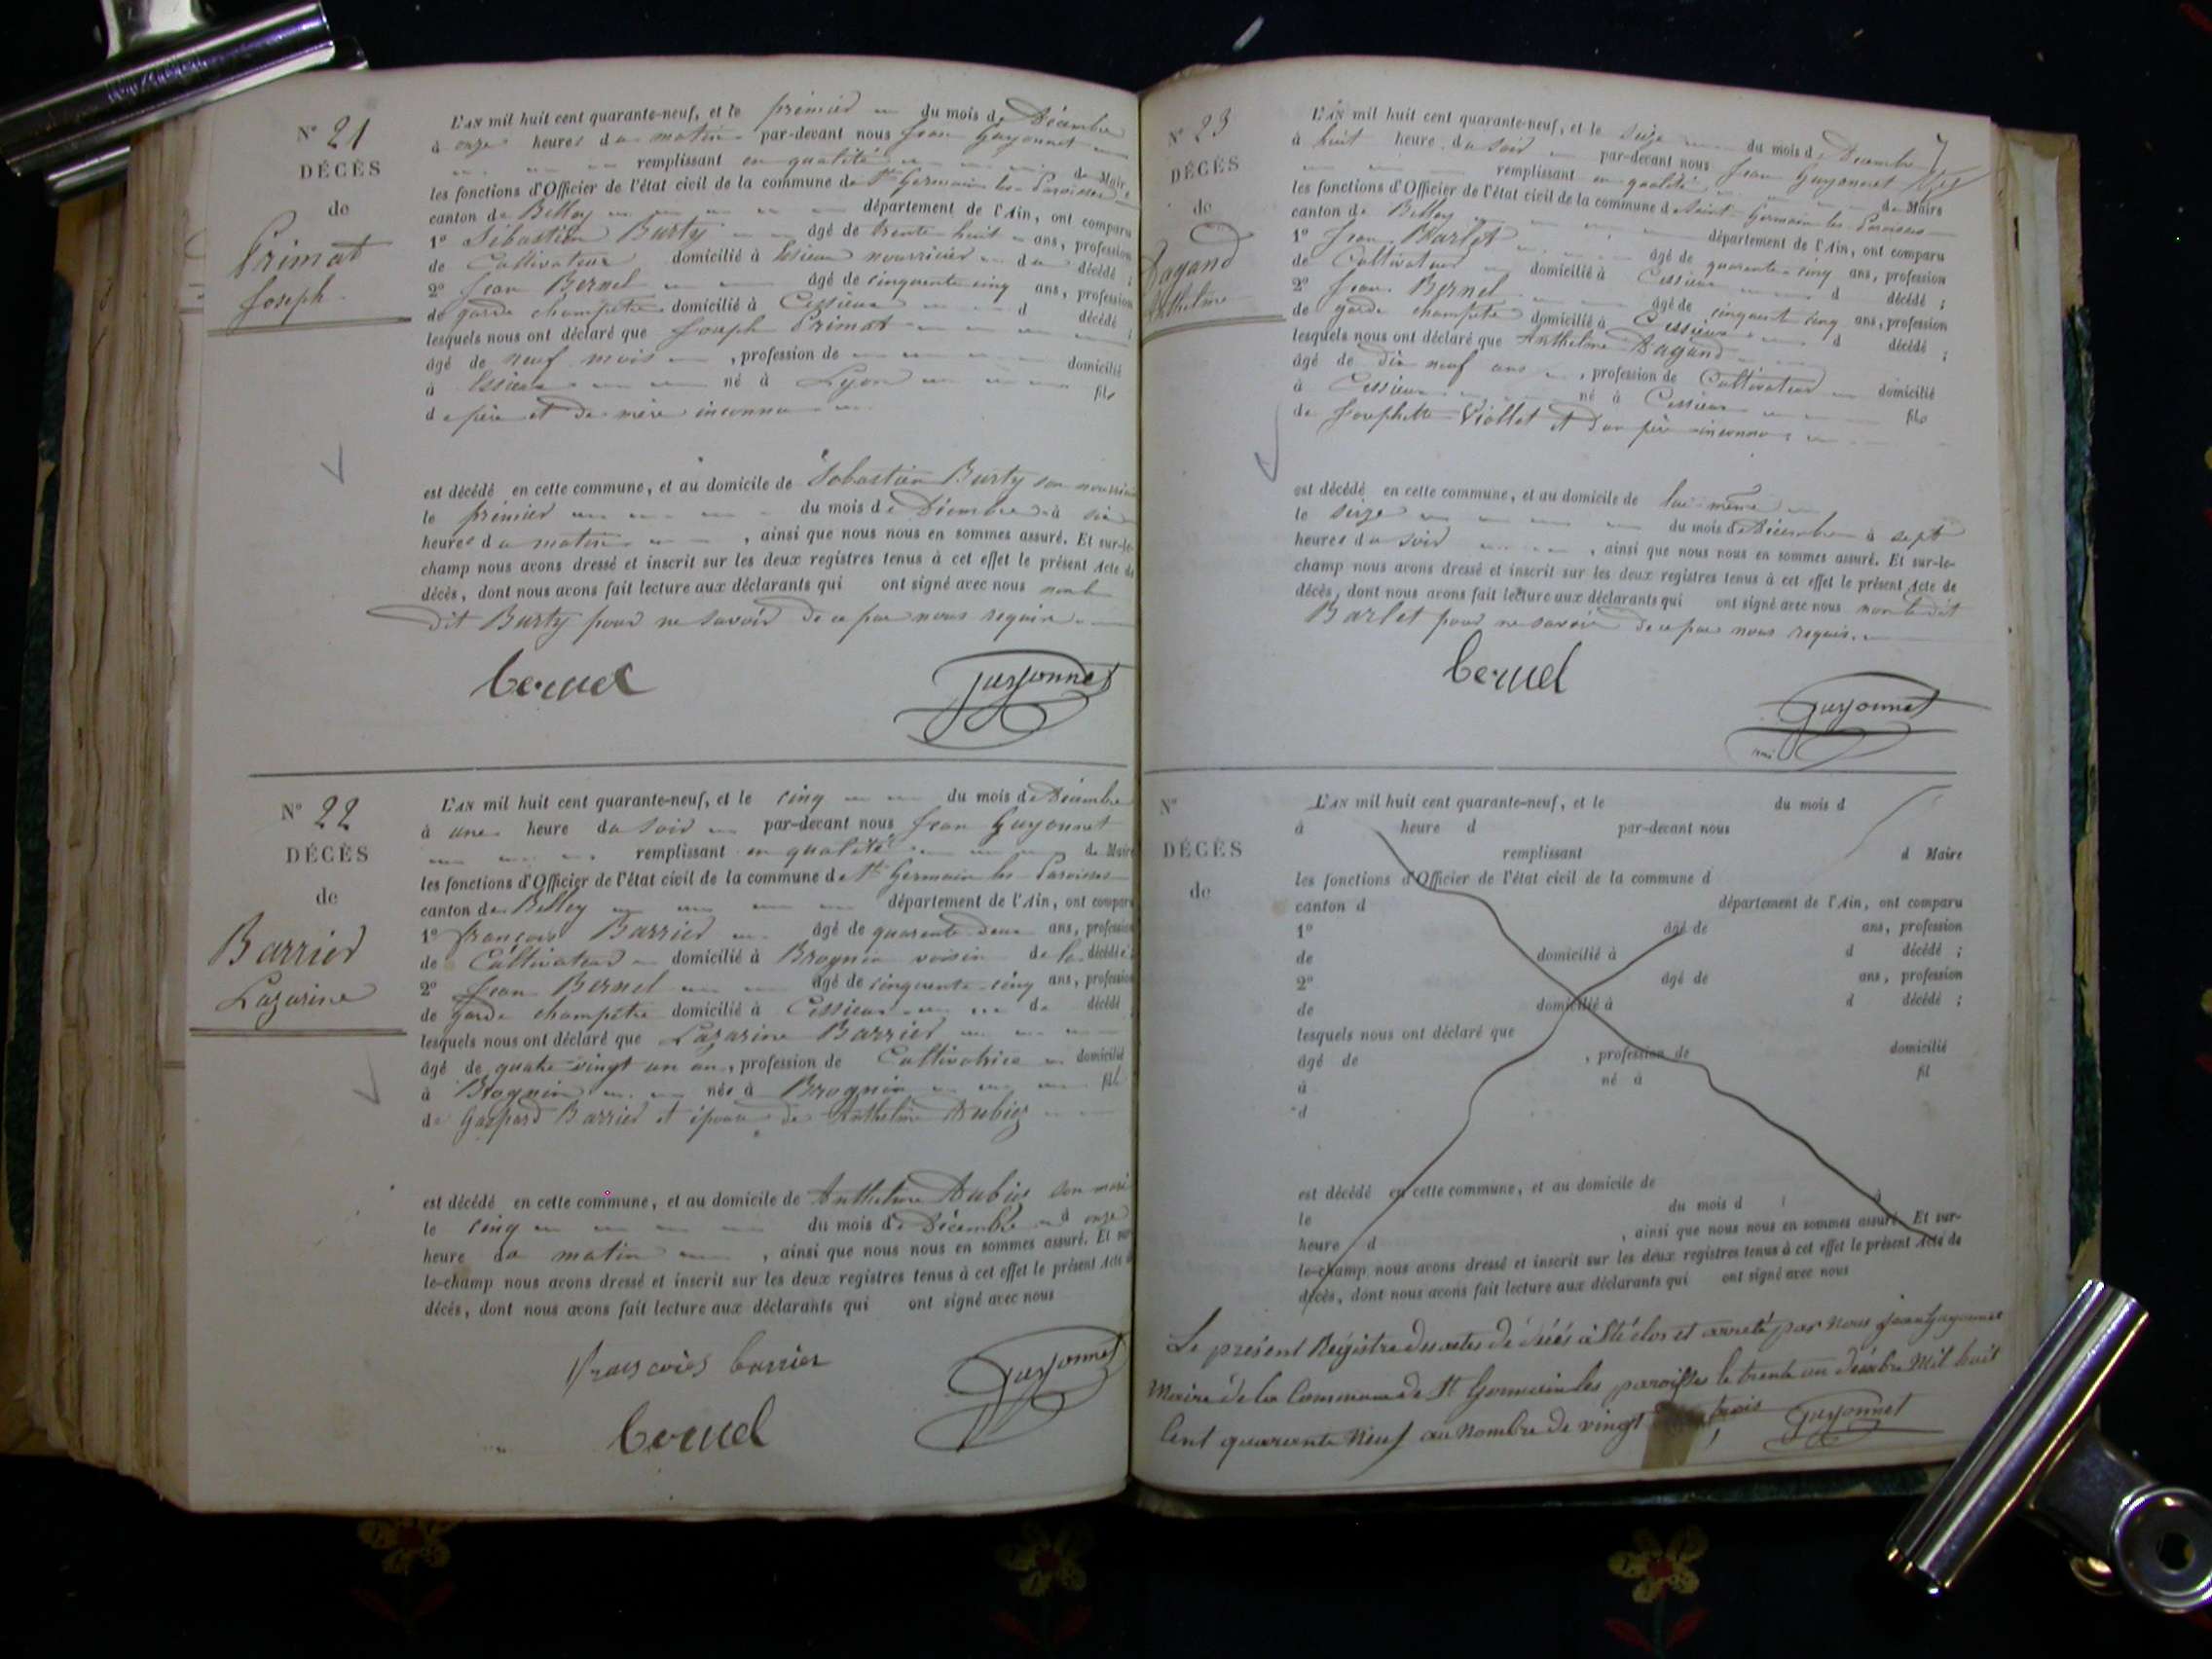 N° 21
DÉCÈS
de
Primat
Joseph.
L'AN mil huit cent quarante-neuf, et le premier du mois de Décembre
à onze heures du matin par-devant nous Jean Guyonnet
remplissant en qualité de Maire
les fonctions d'Officier de l'état civil de la commune de St Germain les Paroisses
canton de Belley département de l'Ain, ont comparu
1° Sébastien Burty âgé de trente huit ans, profession
de Cultivateur domicilié à Essieux nourricier du décédé ;
2° Jean Bernel âgé de cinquante cinq ans, profession
de garde champêtre domicilié à Cessieux d décédé ;
lesquels nous ont déclaré que Joseph Primat
âgé de neuf mois , profession de domicilié
à Essieux né à Lyon fils
de père et de mère inconnu
est décédé en cette commune, et au domicile de Sébastien Burty son nourricier
le premier du mois de Décembre à six
heures du matin , ainsi que nous nous en sommes assuré. Et sur-le-
champ nous avons dressé et inscrit sur les deux registres tenus à cet effet le présent Acte de
décès, dont nous avons fait lecture aux déclarants qui ont signé avec nous non le
dit Burty pour ne savoir de ce par nous requis
bernel
Guyonnet
N° 22
DÉCÈS
de
Barrier
Lazarine
L'AN mil huit cent quarante-neuf, et le cinq du mois de Décembre
à une heure du soir par-devant nous Jean Guyonnet
remplissant en qualité de Maire
les fonctions d'Officier de l'état civil de la commune de St Germain les Paroisses
canton de Belley département de l'Ain, ont comparu
1° françois Barrier âgé de quarante deux ans, profession
de Cultivateur domicilié à Brognin voisin de la décédée ;
2° Jean Bernel âgé de cinquante-cinq ans, profession
de garde champêtre domicilié à Cessieux de décédé
lesquels nous ont déclaré que Lazarine Barrier
âgé de quatre vingt un an, profession de Cultivatrice domicilié
à Brognin née à Brognin fil
de Gaspard Barrier et épouse de Anthelme Aubiez
est décédé en cette commune, et au domicile de Anthelme Aubiez son mari
le cinq du mois de Décembre à onze
heure du matin , ainsi que nous nous en sommes assuré. Et sur-
le-champ nous avons dressé et inscrit sur les deux registres tenus à cet effet le présent Acte de
décès, dont nous avons fait lecture aux déclarants qui ont signé avec nous
françois barrier
Guyonnet
bernel
N° 23
DÉCÈS
de
Dagand
Anthelme
L'AN mil huit cent quarante-neuf, et le seize du mois de Décembre
à huit heure du soir par-devant nous Jean Guyonnet
remplissant en qualité de Maire
les fonctions d'Officier de l'état civil de la commune de Saint Germain les Paroisses
canton de Belley département de l'Ain, ont comparu
1° Jean Barlet âgé de quarante cinq ans, profession
de Cultivateur domicilié à Cessieux d décédé ;
2° Jean Bernel âgé de cinquante cinq ans, profession
de garde champêtre domicilié à Cessieux d décédé ;
lesquels nous ont déclaré que Anthelme Dagand
âgé de dix neuf ans , profession de Cultivateur domicilié
à Cessieux né à Cessieux fils
de Josephte Viollet et d'un père inconnu
est décédé en cette commune, et au domicile de lui-même
le seize du mois de Décembre à sept
heures du soir , ainsi que nous nous en sommes assuré. Et sur-le-
champ nous avons dressé et inscrit sur les deux registres tenus à cet effet le présent Acte de
décès, dont nous avons fait lecture aux déclarants qui ont signé avec nous non le dit
Barlet pour ne savoir de ce par nous requis.
bernel
Guyonnet
N°
DÉCÈS
de
L'AN mil huit cent quarante-neuf, et le du mois d
à heure d par-devant nous
remplissant d Maire
les fonctions d'Officier de l'état civil de la commune d
canton d département de l'Ain, ont comparu
1° âgé de ans, profession
de domicilié à d décédé ;
2° âgé de ans, profession
de domicilié à d décédé ;
lesquels nous ont déclaré que
âgé de , profession de domicilié
à né à fil
d
est décédé en cette commune, et au domicile de
le du mois d à
heure d , ainsi que nous nous en sommes assuré. Et sur-
le-champ nous avons dressé et inscrit sur les deux registres tenus à cet effet le présent Acte de
décès, dont nous avons fait lecture aux déclarants qui ont signé avec nous
Le présent Régistre des actes de décès à été clos et arreté par nous Jean Guyonnet
Maire de la Commune de St Germain les paroisses le trente un décembre Mil huit
Cent quarante Neuf au Nombre de vingt trois
Guyonnet